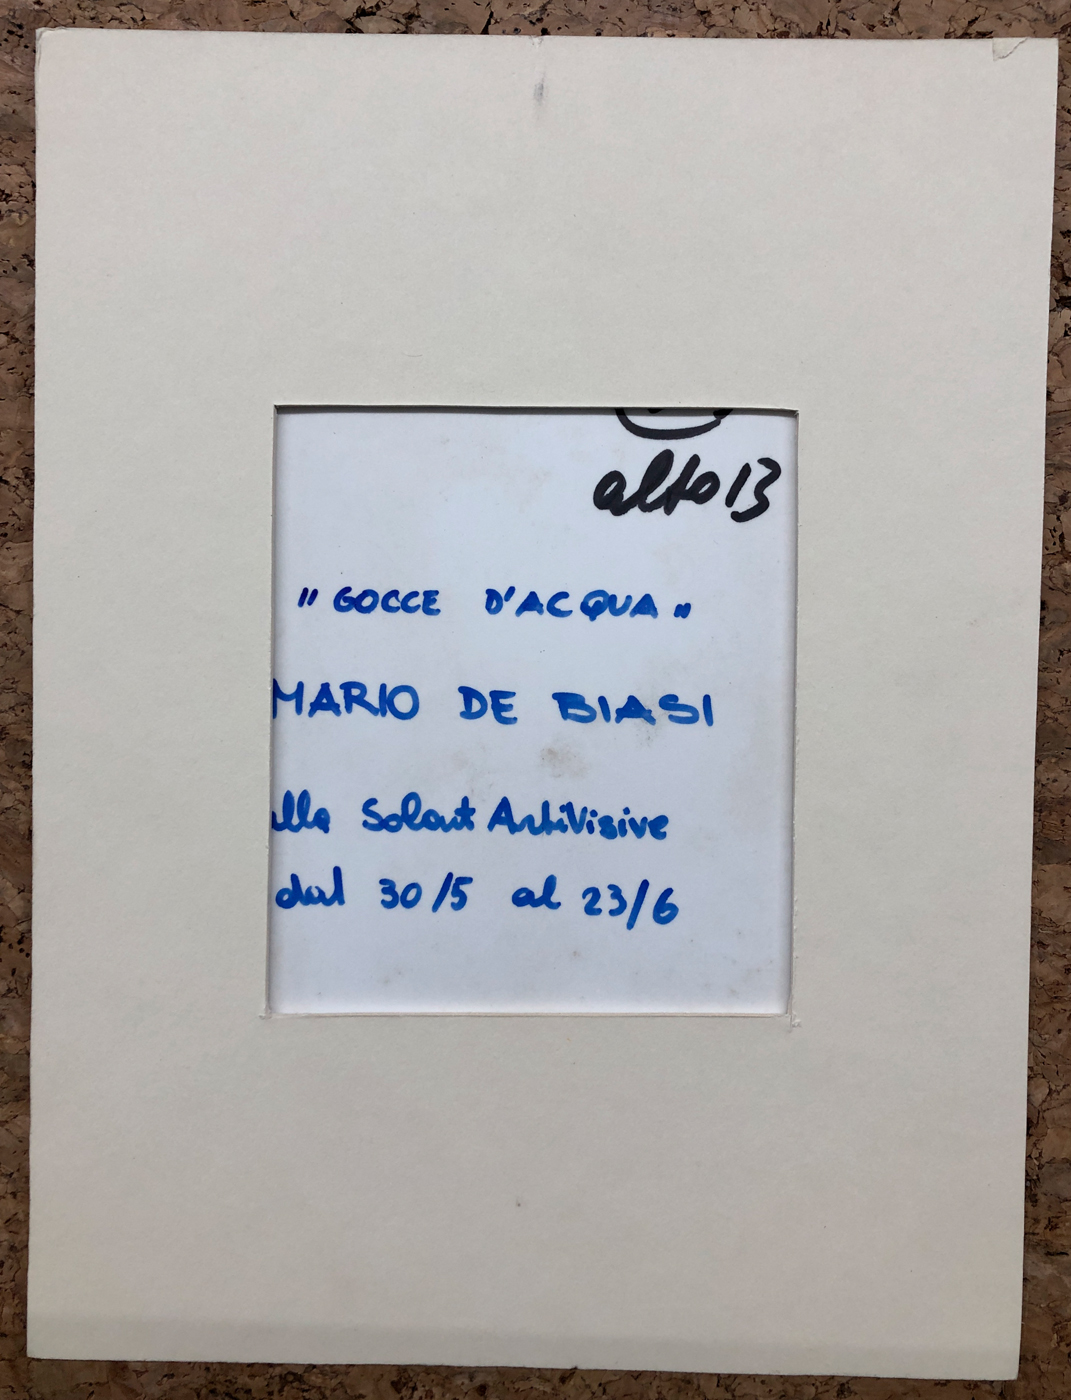 alto 13
"GOCCE D'ACQUA"
MARIO DE BIASI
alla Solart ArtiVisive
dal 30/5 al 23/6